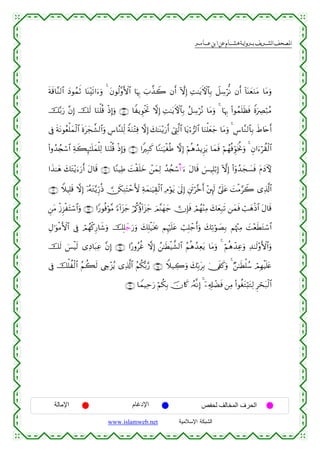 المصحف الشريف برواية هشام عن ابن عامر
وَمَا مَنَعَنَآ أَن نُّرْسِلَ بِٱلْءَايَٰتِ إِلَّآ أَن كَذَّبَ بِهَا ٱلْأَوَّلُونَ ۚ وَءَاتَيْنَا ثَمُودَ ٱلنَّاقَةَ
مُبْصِرَةً فَظَلَمُوا۟ بِهَا ۚ وَمَا نُرْسِلُ بِٱلْءَايَٰتِ إِلَّا تَخْوِيفًا ﴿٥٩﴾ وَإِذْ قُلْنَا لَكَ إِنَّ رَبَّكَ
أَحَاطَ بِٱلنَّاسِ ۚ وَمَا جَعَلْنَا ٱلرُّءْيَا ٱلَّتِىٓ أَرَيْنَٰكَ إِلَّا فِتْنَةً لِّلنَّاسِ وَٱلشَّجَرَةَ ٱلْمَلْعُونَةَ فِى
ٱلْقُرْءَانِ ۚ وَنُخَوِّفُهُمْ فَمَا يَزِيدُهُمْ إِلَّا طُغْيَٰنًا كَبِيرًا ﴿٦٠﴾ وَإِذْ قُلْنَا لِلْمَلَٰٓئِكَةِ ٱسْجُدُوا۟
لِءَادَمَ فَسَجَدُوٓا۟ إِلَّآ إِبْلِيسَ قَالَ ءَأَسْجُدُ لِمَنْ خَلَقْتَ طِينًا ﴿٦١﴾ قَالَ أَرَءَيْتَكَ هَٰذَا
ٱلَّذِى كَرَّمْتَ عَلَىَّ لَئِنْ أَخَّرْتَنِ إِلَىٰ يَوْمِ ٱلْقِيَٰمَةِ لَأَحْتَنِكَنَّ ذُرِّيَّتَهُۥٓ إِلَّا قَلِيلًا ﴿٦٢﴾
قَالَ ٱذْهَبْ فَمَن تَبِعَكَ مِنْهُمْ فَإِنَّ جَهَنَّمَ جَزَآؤُكُمْ جَزَآءً مَّوْفُورًا ﴿٦٣﴾ وَٱسْتَفْزِزْ مَنِ
ٱسْتَطَعْتَ مِنْهُم بِصَوْتِكَ وَأَجْلِبْ عَلَيْهِم بِخَيْلِكَ وَرَجْلِكَ وَشَارِكْهُمْ فِى ٱلْأَمْوَٰلِ
وَٱلْأَوْلَٰدِ وَعِدْهُمْ ۚ وَمَا يَعِدُهُمُ ٱلشَّيْطَٰنُ إِلَّا غُرُورًا ﴿٦٤﴾ إِنَّ عِبَادِى لَيْسَ لَكَ
عَلَيْهِمْ سُلْطَٰنٌ ۚ وَكَفَىٰ بِرَبِّكَ وَكِيلًا ﴿٦٥﴾ رَّبُّكُمُ ٱلَّذِى يُزْجِى لَكُمُ ٱلْفُلْكَ فِى
ٱلْبَحْرِ لِتَبْتَغُوا۟ مِن فَضْلِهِۦٓ ۚ إِنَّهُۥ كَانَ بِكُمْ رَحِيمًا ﴿٦٦﴾
الحرف المخالف لحفص الإدغام الإمالة
الشبكة الإسلامية www.islamweb.net